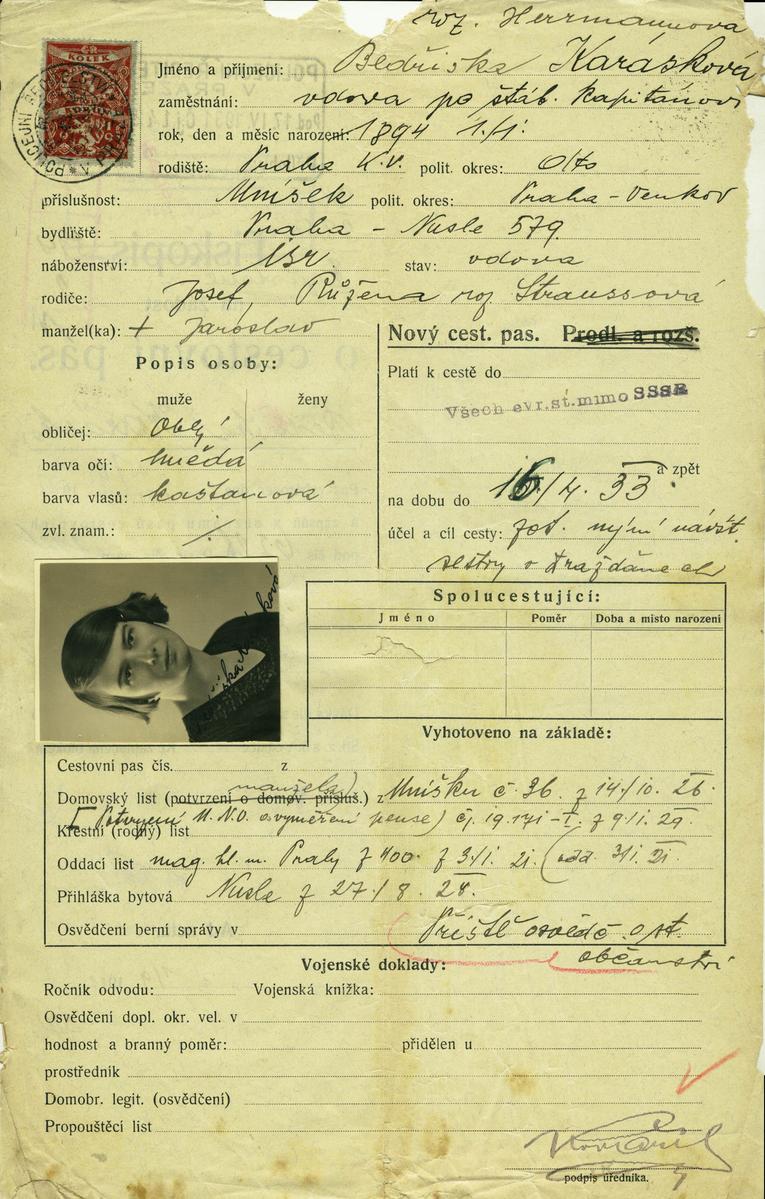 roz. Herrmannova
Jméno a příjmení: Bedřiska Karásková
zaměstnání: vdova po štáb. kapitánovi
rok, den a měsíc narození: 1894 1./1.
rodiště: Praha K.V. polit. okres:
příslušnost: Mníšek polit. okres: Praha-Venkov
bydliště: Praha - Nusle 579
náboženství: isr. stav: vdova
rodiče: Josef, Růžena roz. Straussová
manžel(ka): + Jaroslav
Nový cest. pas. Prodl. a rozš.
Popis osoby:
Platí k cestě do
muže ženy
Všech evr. st. mimo SSSR
obličej: oblý
barva očí: hnědá
a zpět
barva vlasů: kaštanová
na dobu do 16/4. 33
zvl. znam.: /.
účel a cíl cesty: návšt.
sestry v Draždanech
Spolucestující:
Jméno Poměr Doba a místo narození
Vyhotoveno na základě:
Cestovní pas čís. z
manžela
Domovský list (potvrzení o domov. přísluš.) z Mníšku č. 36. z 14./10. 26.
Potvrzení M.N.O. o vyměření pense) čj. 19.171-I. z 9./1. 29.
Křestní (rodný) list
Oddací list mag. hl. m. Prahy z 400. z 3./1. 21. (odd. 3./1. 21.
Přihláška bytová Nusle z 27./8. 28.
Osvědčení berní správy v Příště osvědč. o st.
občanství
Vojenské doklady:
Ročník odvodu: Vojenská knížka:
Osvědčení dopl. okr. vel. v
hodnost a branný poměr: přidělen u
prostředník
Domobr. legit. (osvědčení)
Propouštěcí list
podpis úředníka.
KOLEK